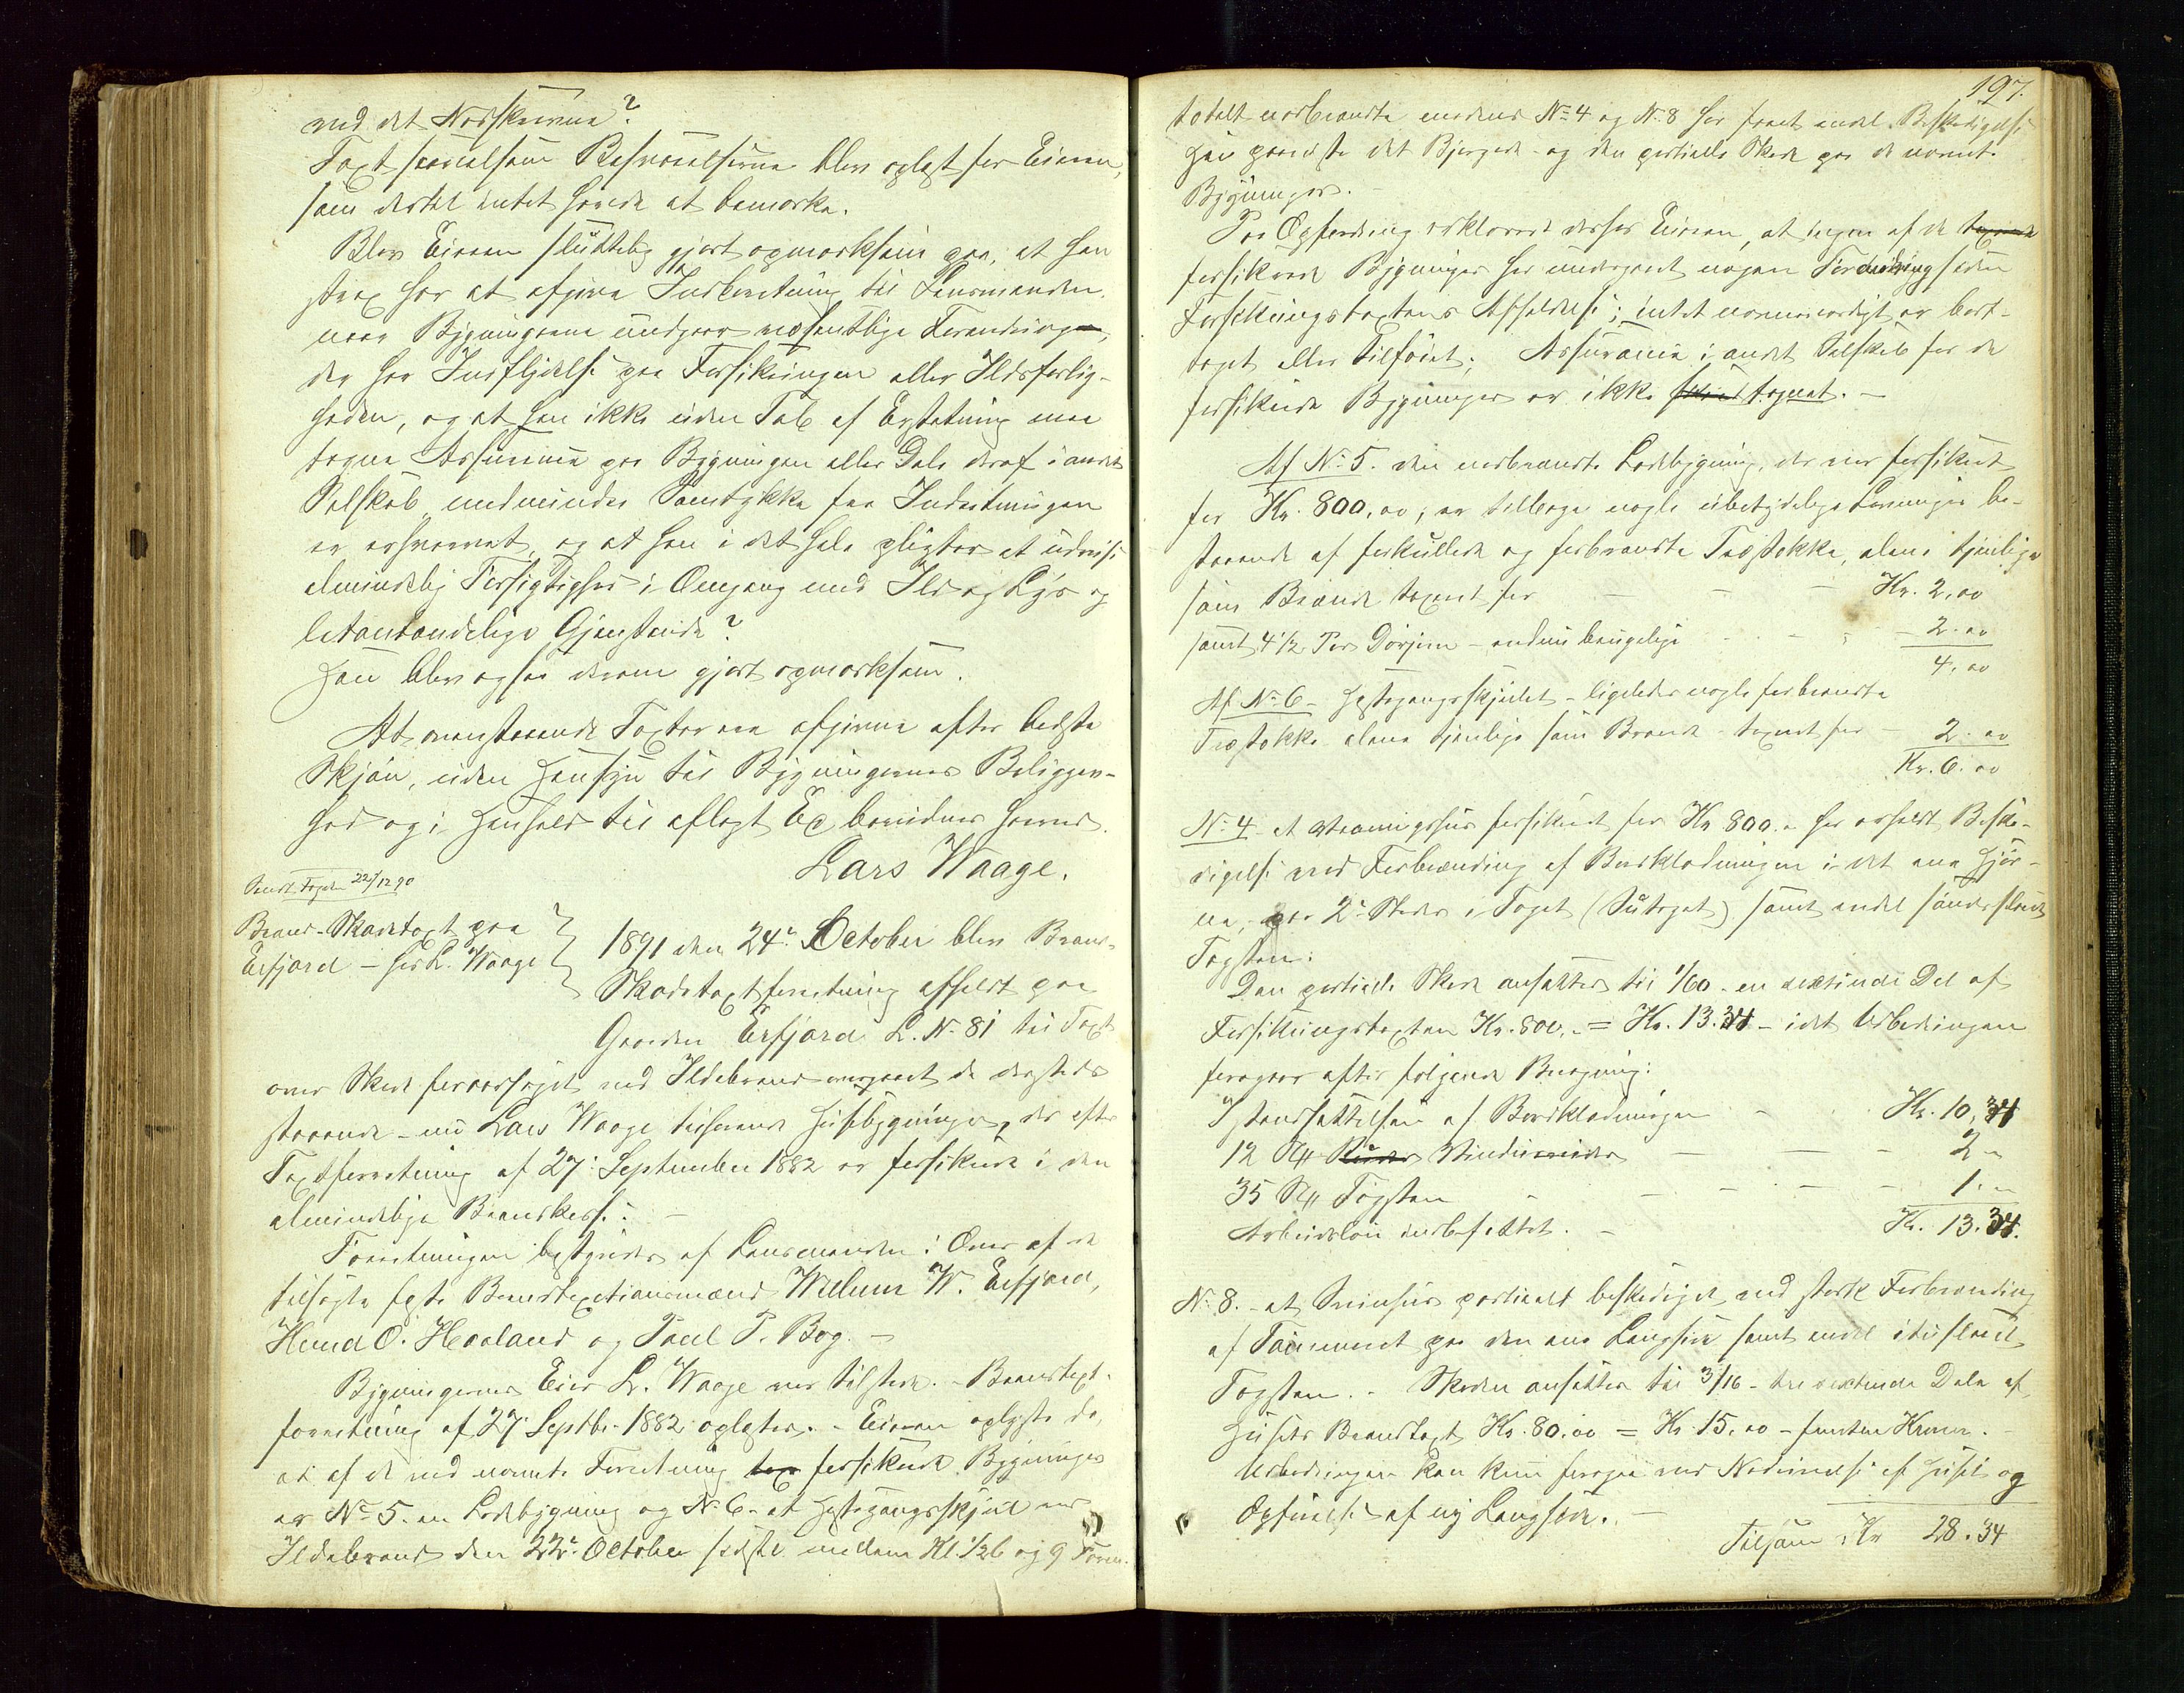 ved det Nedskrevne?
Taxt saavelsom Besvarelserne blev oplæst for Eieren,
som dertil intet havde at bemærke.
Blev Eieren sluttelig gjort opmærksom paa, at han
strax har at afgive Indberetning til Lensmanden,
naar Bygningerne undgaar væsentlige Forandringer,
der har Indflydelse paa Forsikringen eller Ildsfarlig-
heden, og at han ikke uden Tab af Erstatning maa
tegne Assurance paa Bygningen eller Dele deraf i andet
Selskab, medmindre Samtykke fra Indretningen
er erhvervet, og at han i det Hele pligter at udvise
almindelig Forsigtighed i Omgang med Ild og Lys og
letantændelige Gjenstande?
Han blev ogsaa derom gjort opmærksom.
At ovenstaaende Taxter ere afgivne efter bedste
Skjøn, uden Hensyn til Bygningernes Beliggen-
hed og i Henhold til aflagt Ed bevidnes herved.
Lars Waage.
Sendt Fogden 22/12 90
Brand-Skadetaxt paa
Erfjord – hos L. Waage
1891 den 24de October blev Brand-
Skadetaxtforretning afholdt paa
Gaarden Erfjord L. No 81 til Taxt
over Skade foraarsaget ved Ildebrand overgaaet de dersteds
staaende – nu Lars Waage tilhørende Husebygninger, der efter
Taxtforretning af 27. September 1882 er forsikrede i den
almindelige Brandkasse: –
Forretningen bestyredes af Lensmanden i Over af de
tilsagte faste Brandtaxationsmænd Willum W. Erfjord,
Knud O. Hovland og Paul P. Bog. –
Bygningernes Eier L. Waage var tilstede. – Brandtaxt-
forretning af 27 Septbr. 1882 oplæstes. – Eieren oplyste da,
at af de ved nævnte Forretning tax forsikrede Bygninger
er No 5. en Ladebygning og No 6. et Hestegangsskjul ved
Ildebrand den 22de October sidstl. mellem Kl. 1/2 6 og 9 Form.
197.
totalt nedbrændte medens No 4 og No 8 har faaet endel Beskadigelse
Han paaviste det Bjergede og den partielle Skade paa de nævnte
Bygninger. –
Paa Opfordring erklærede derhos Eieren, at ingen af de taxerede
forsikrede Bygninger har undergaaet nogen Forandring siden
Forsikringstaxtens Afholdelse; intet nævneværdigt er bort-
taget eller tilføiet; Assurance i andet Selskab for de
forsikrede Bygninger er ikke tegnet. –
Af No 5. den nedbrændte Ladebygning, der var forsikret
for Kr. 800,00, er tilbage nogle ubetydelige Levninger be-
staaende af forkullede og forbrændte Træstokke, alene tjenlige
som Brænde taxeret for – – – Kr. 2,00
samt 4 1/2 Par Dørjern – endnu brugelige – – – 2.00
4,00
Af No 6 – Hestegangsskjulet – ligeledes nogle forbrændte
Træstokke alene tjenlige som Brænde – taxeret for – 2.00
Kr. 6.00
No 4 – et Vaaningshus forsikret for Kr 800.- har erholdt Beska-
digelse ved Forbrænding af Bordklædningen i det ene Hjør-
ne, paa 2de Steder i Taget (Sutaget) samt endel sønderslaaede
Tagsten:
Den partielle Skade ansættes til 1/60 – en sextiende Del af
Forsikringstaxten Kr. 800.- = Kr. 13.34 – idet Udbedringen
foregaar efter følgende Beregning:
Istandsættelsen af Bordklædningen – Kr. 10,34
12 St. Ruder Vinduesruder – – – 2 "
35 St. Tagsten – – – – 1. "
Arbeidsløn indbefattet. – Kr. 13.34.
No 8. – et Smiehus partielt beskadiget ved stærk Forbrænding
af Tømmeret paa den ene Langside samt endel ituslaaet
Tagsten. – Skaden ansættes til 3/16 – tre sextende Dele af
Husets Brandtaxt Kr. 80.00 = Kr. 15.00 – femten Kroner. –
Udbedringen kan kun foregaa ved Nedrivelse af Huset og
Opførelse af ny Langside. –
Tilsam. Kr 28.34